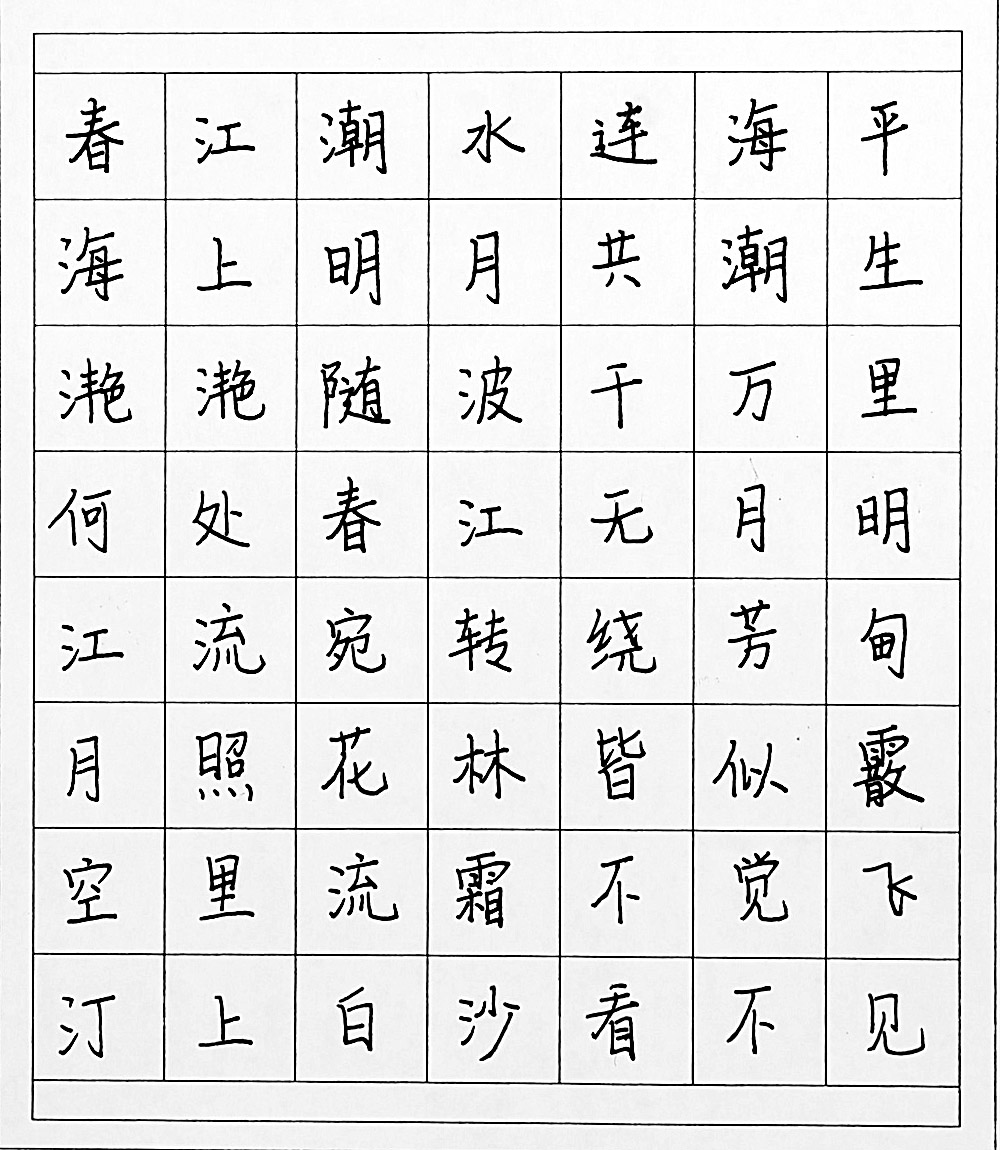 春江潮水连海平
海上明月共潮生
滟滟随波千万里
何处春江无月明
江流宛转绕芳甸
月照花林皆似霰
空里流霜不觉飞
汀上白沙看不见